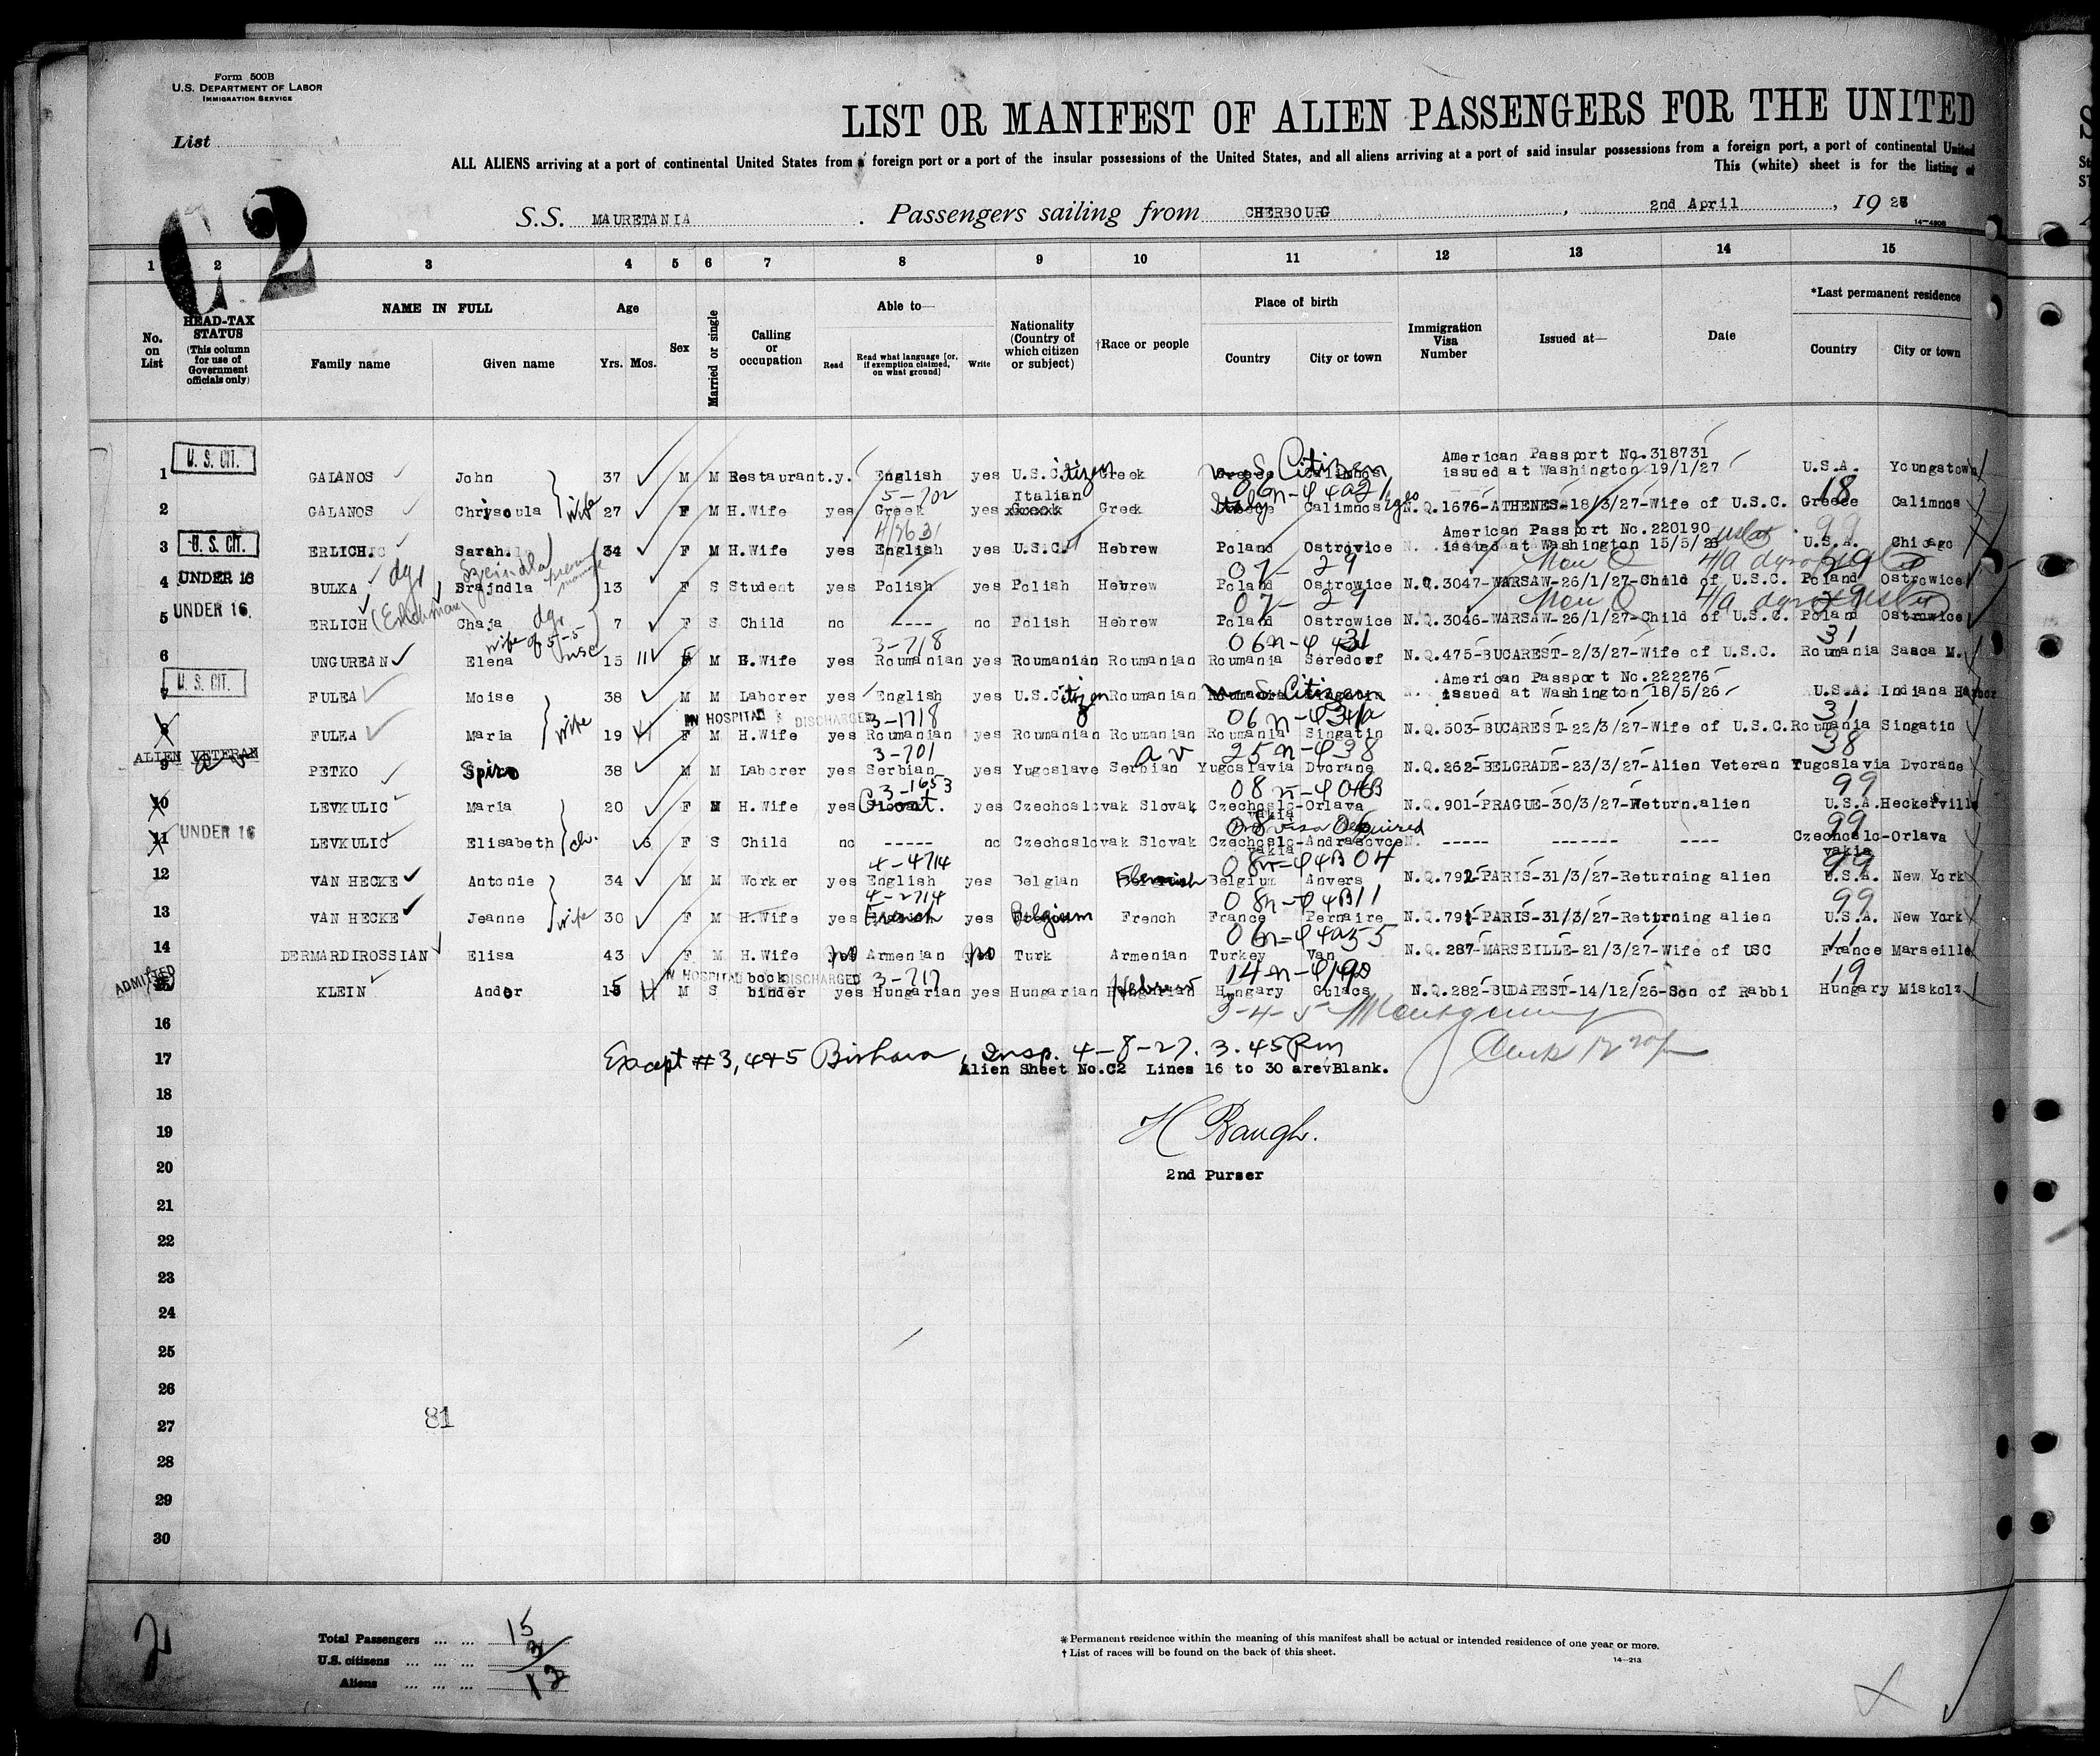 Form 500B
U.S. DEPARTMENT OF LABOR
IMMIGRATION SERVICE
List
C2
LIST OR MANIFEST OF ALIEN PASSENGERS FOR THE UNITED
ALL ALIENS arriving at a port of continental United States from a foreign port or a port of the insular possessions of the United States, and all aliens arriving at a port of said insular possessions from a foreign port, a port of continental United
This (white) sheet is for the listing of
S.S. MAURETANIA. Passengers sailing from CHERBOURG, 2nd April, 19 2
14-4908
1 2 3 4 5 6 7 8 9 10 11 12 13 14 15
No. on List
HEAD-TAX STATUS (This column for use of Government officials only)
NAME IN FULL
Family name Given name
Age
Yrs. Mos.
Sex
Married or single
Calling or occupation
Able to—
Read Read what language [or, if exemption claimed, on what ground] Write
Nationality (Country of which citizen or subject)
†Race or people
Place of birth
Country City or town
Immigration Visa Number
Issued at—
Date
*Last permanent residence
Country City or town
U. S. CIT. U.S. Citizen American Passport No.318731
1 GALANOS John 37 M M Restaurant.y. English yes U.S.Citizen Greek Greece Calimnos issued at Washington 19/1/27 U.S.A. Youngstown
5-702 Italian 06n-64a21 18
2 GALANOS Chrysoula wife 27 F M H.Wife yes Greek yes Greek Greek Calimnos N.Q.1676-ATHENES-18/3/27-Wife of U.S.C. Greece Calimnos
U. S. CIT. American Passport No.220190 99
3 ERLICH Sarah 34 F M H.Wife yes English yes U.S.C. Hebrew Poland Ostrovice issued at Washington 15/5/26 U.S.A. Chicago
UNDER 16 dgr Szeindla 07- 29 Non Q
4 BULKA Brajndla 13 F S Student yes Polish yes Polish Hebrew Poland Ostrowice N.Q.3047-WARSAW-26/1/27-Child of U.S.C. Poland Ostrowice
UNDER 16 dgr 07- 29 Non Q
5 ERLICH (Erlichman) Chaja 7 F S Child no ---- no Polish Hebrew Poland Ostrowice N.Q.3046-WARSAW-26/1/27-Child of U.S.C. Poland Ostrowice
wife of USC 3-718 31
6 UNGUREAN Elena 15 11 F M H.Wife yes Roumanian yes Roumanian Roumanian Roumania N.Q.475-BUCAREST-2/3/27-Wife of U.S.C. Roumania Sasca M.
U. S. CIT. U.S. Citizen American Passport No.222276
7 FULEA Moise 38 M M Laborer yes English yes U.S.Citizen Roumanian Roumania Singatin issued at Washington 18/5/26 U.S.A. Indiana Harbor
IN HOSPITAL DISCHARGED 3-1718 31
8 FULEA Maria wife 19 F M H.Wife yes Roumanian yes Roumanian Roumanian Roumania Singatin N.Q.503-BUCAREST-22/3/27-Wife of U.S.C. Roumania Singatin
ALIEN VETERAN 3-701 a v 38
9 PETKO Spiro 38 M M Laborer yes Serbian yes Yugoslave Serbian Yugoslavia Dvorane N.Q.262-BELGRADE-23/3/27-Alien Veteran Yugoslavia Dvorane
3-1653 99
10 LEVKULIC Maria 20 F M H.Wife yes yes Czechoslovak Slovak Czechoslo-vakia Orlava N.Q.901-PRAGUE-30/3/27-Return.alien U.S.A. Heckerville
UNDER 16 no visa required 99
11 LEVKULIC Elisabeth ch. F S Child no ----- no Czechoslovak Slovak Czechoslo-vakia Andrasovce ----- ------- ---- Czechoslo-vakia Orlava
4-4714 99
12 VAN HECKE Antonie 34 M M Worker yes English yes Belgian Flemish Belgium Anvers N.Q.792-PARIS-31/3/27-Returning alien U.S.A. New York
4-2714 99
13 VAN HECKE Jeanne wife 30 F M H.Wife yes French yes Belgium French France Pernaire N.Q.791-PARIS-31/3/27-Returning alien U.S.A. New York
06n-64a55 11
14 DERMARDIROSSIAN Elisa 43 F M H.Wife no Armenian no Turk Armenian Turkey Van N.Q.287-MARSEILLE-21/3/27-Wife of USC France Marseille
ADMITTED IN HOSPITAL DISCHARGED 3-717 19
15 KLEIN Andor 15 M S book binder yes Hungarian yes Hungarian Hebrew Hungary Gulacs N.Q.282-BUDAPEST-14/12/26-Son of Rabbi Hungary Miskolz
16 3-4-5 Montgomery
17 Except #3,4+5 Bishara, Insp. 4-8-27. 3.45 Pm
Alien Sheet No.C2 Lines 16 to 30 are Blank.
18
19 H Baugh.
20 2nd Purser
21
22
23
24
25
26
27 81
28
29
30
2
Total Passengers ... ... 15
U.S. citizens ... ... ... 3
Aliens ... ... ... 12
* Permanent residence within the meaning of this manifest shall be actual or intended residence of one year or more.
† List of races will be found on the back of this sheet.
14-213